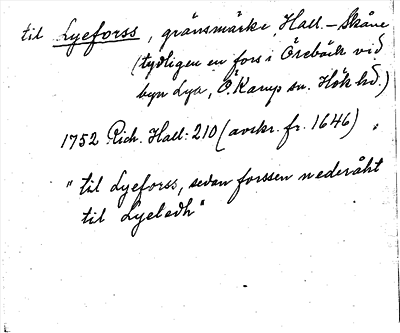 til Lyeforss, gränsmärke, Hall. - Skåne
(tydligen en fors i Örebäck vid
byn Lya, Ö. Karup sn. Hök hd.)
1752 Rich. Hall: 210 (avskr. fr. 1646)
"til Lyeforss, sedan forssen nederåht
til Lyeledh"